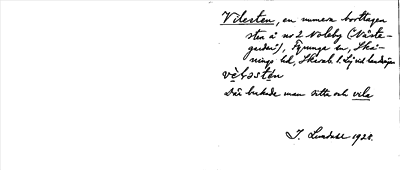 Vilesten, en numera borttagen
sten å nr 2 Naleby (Väste-
gården), Fyrunga sn, Skå-
nings hd, Skarab. l. Sig vid landsvägen
vèləstén
Där brukade man sitta och vila
J. 1928.